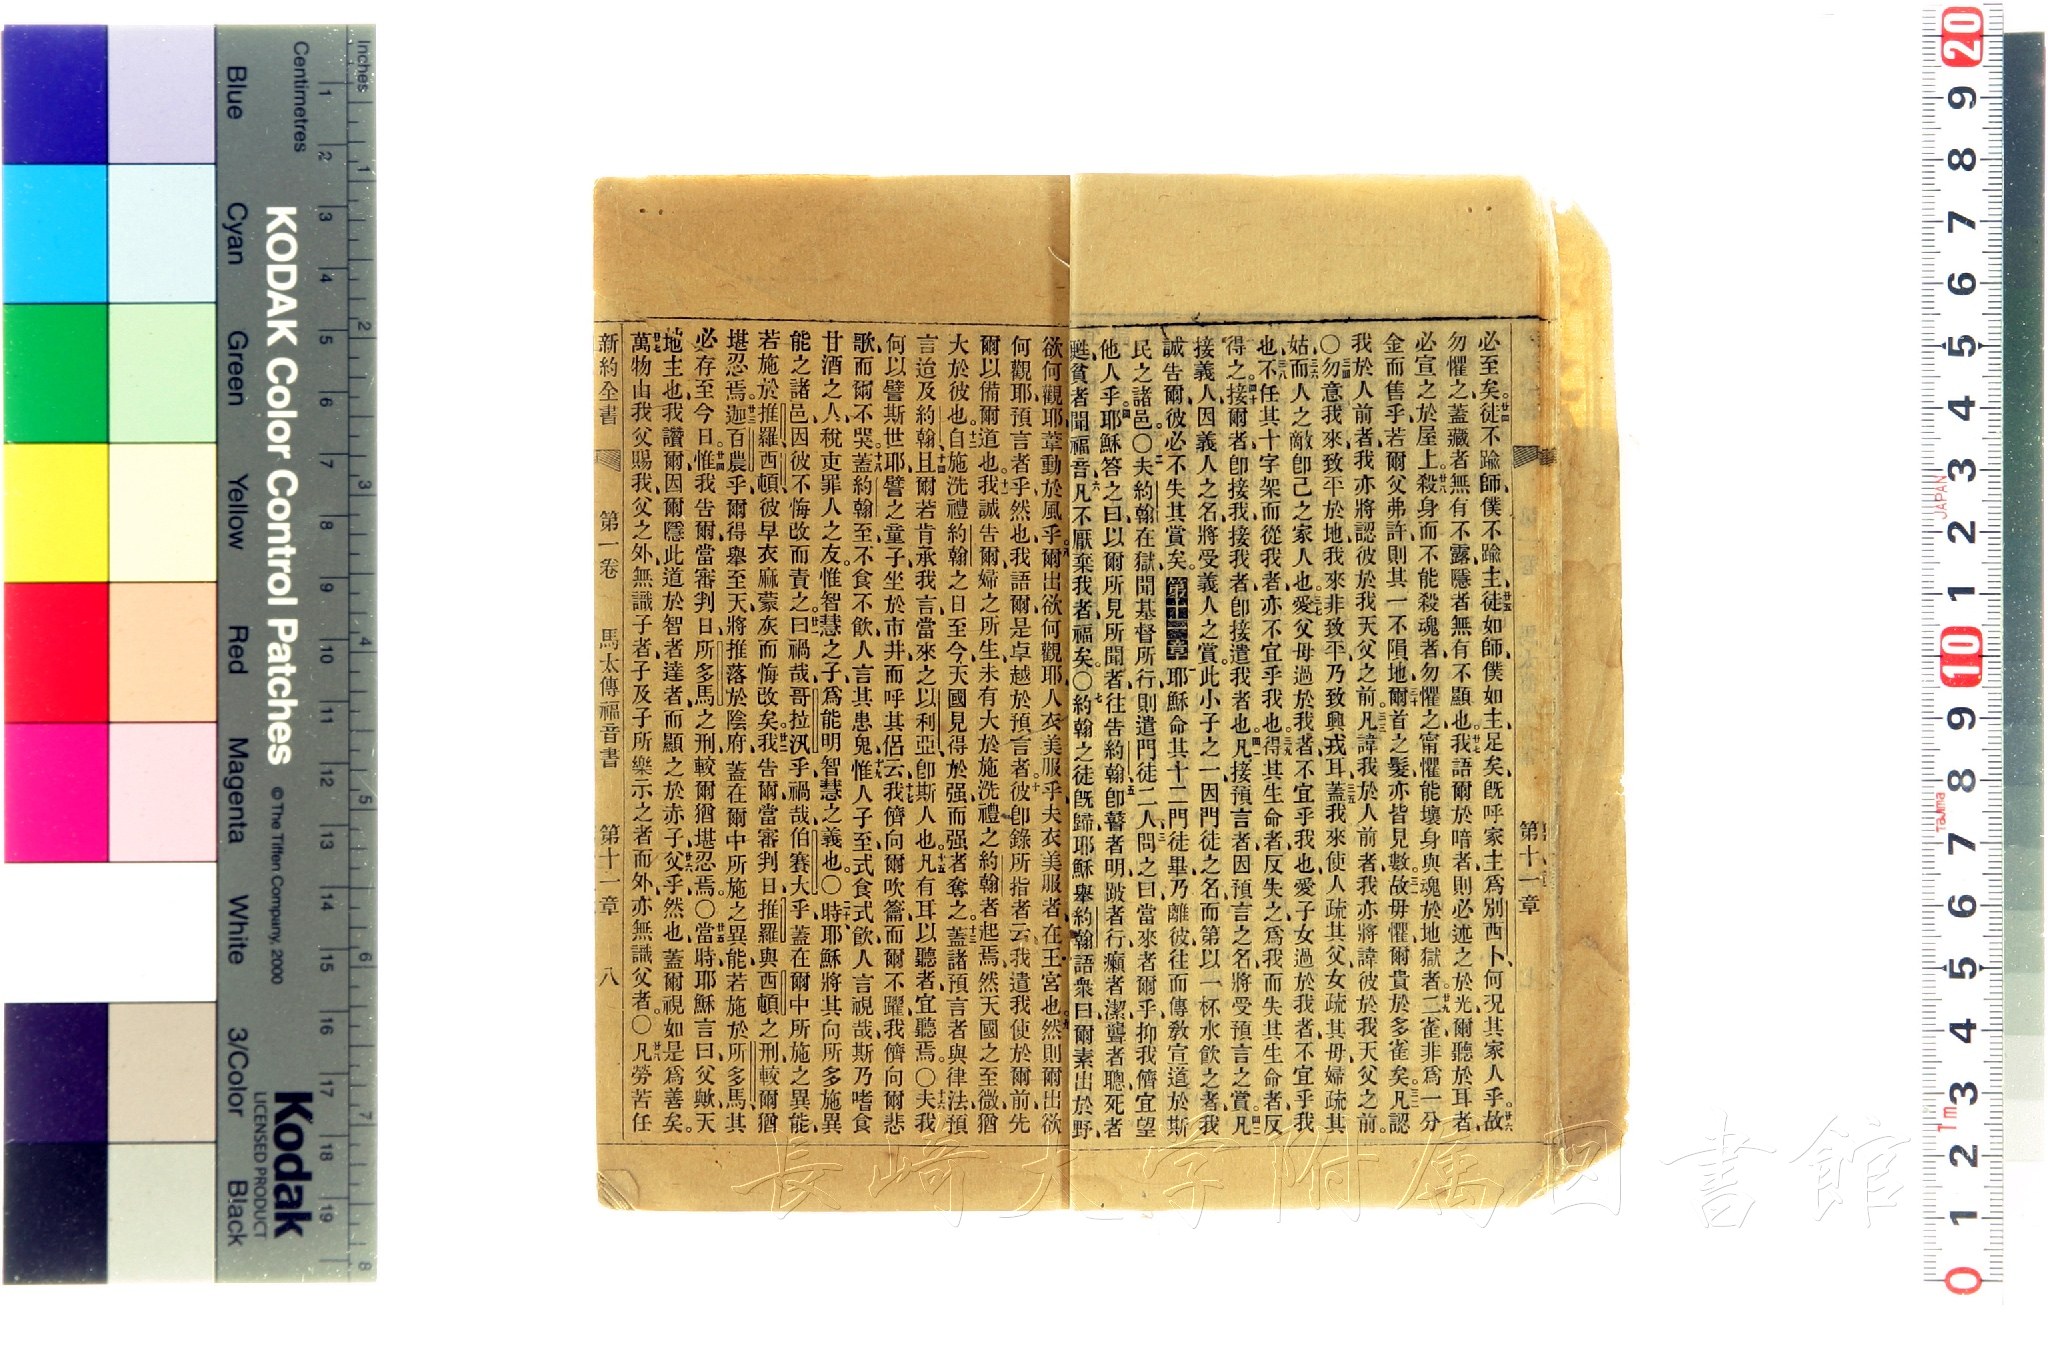 必至矣徒不踰師僕不踰主徒如師僕如主足矣旣呼家主爲別西卜何況其家人乎故
勿懼之蓋藏者無有不露隱者無有不顯也我語爾於暗者則必述之於光爾聽於耳者
必宣之於屋上殺身而不能殺魂者勿懼之甯懼能壞身與魂於地獄者二雀非爲一分
金而售乎若爾父弗許則其一不隕地爾首之髮亦皆見數故毋懼爾貴於多雀矣凡認
我於人前者我亦將認彼於我天父之前凡諱我於人前者我亦將諱彼於我天父之前
〇勿意我來致平於地我來非致平乃致興戎耳蓋我來使人疏其父女疏其母婦疏其
姑而人之敵卽己之家人也愛父母過於我者不宜乎我也愛子女過於我者不宜乎我
也不任其十字架而從我者亦不宜乎我也得其生命者反失之爲我而失其生命者反
得之接爾者卽接我接我者卽接遣我者也凡接預言者因預言之名將受預言之賞凡
接義人因義人之名將受義人之賞此小子之一因門徒之名而第以一杯水飲之者我
誠告爾彼必不失其賞矣第十一章耶穌命其十二門徒畢乃離彼往而傳教宣道於斯
民之諸邑〇夫約翰在獄聞基督所行則遣門徒二人問之曰當來者爾乎抑我儕宜望
他人乎耶穌答之曰以爾所見所聞者往告約翰卽瞽者明跛者行癩者潔聾者聰死者
甦貧者聞福音凡不厭棄我者福矣〇約翰之徒旣歸耶穌舉約翰語衆曰爾素出於野
欲何觀耶葦動於風乎爾出欲何觀耶人衣美服乎夫衣美服者在王宮也然則爾出欲
何觀耶預言者乎然也我語爾是卓越於預言者彼卽錄所指者云我遣我使於爾前先
爾以備爾道也我誠告爾婦之所生未有大於施洗禮之約翰者起焉然天國之至微猶
大於彼也自施洗禮約翰之日至今天國見得於强而强者奪之蓋諸預言者與律法預
言迨及約翰且爾若肯承我言當來之以利亞卽斯人也凡有耳以聽者宜聽焉〇夫我
何以譬斯世耶譬之童子坐於市井而呼其侶云我儕向爾吹籥而爾不躍我儕向爾悲
歌而爾不哭蓋約翰至不食不飮人言其患鬼惟人子至式食式飮人言視哉斯乃嗜食
甘酒之人稅吏罪人之友惟智慧之子爲能明智慧之義也〇時耶穌將其向所多施異
能之諸邑因彼不悔改而責之曰禍哉哥拉汛乎禍哉伯賽大乎蓋在爾中所施之異能
若施於推羅西頓彼早衣麻蒙灰而悔改矣我告爾當審判日推羅與西頓之刑較爾猶
堪忍焉迦百農乎爾得舉至天將推落於陰府蓋在爾中所施之異能若施於所多馬其
必存至今日惟我告爾當審判日所多馬之刑較爾猶堪忍焉〇當時耶穌言曰父歟天
地主也我讚爾因爾隱此道於智者達者而顯之於赤子父乎然也蓋爾視如是爲善矣
萬物由我父賜我父之外無識子者子及子所樂示之者而外亦無識父者〇凡勞苦任
新約全書 第一卷 馬太傳福音書 第十一章 八
第十一章
長崎大学附属図書館
KODAK Color Control Patches
© The Tiffen Company, 2000
Kodak
LICENSED PRODUCT
Inches
Centimetres
Blue
Cyan
Green
Yellow
Red
Magenta
White
3/Color
Black
1 2 3 4 5 6 7 8 9 10 11 12 13 14 15 16 17 18 19
1 2 3 4 5 6 7 8
20 9 8 7 6 5 4 3 2 1 10 9 8 7 6 5 4 3 2 1 0
JAPAN
Tajima
Tm